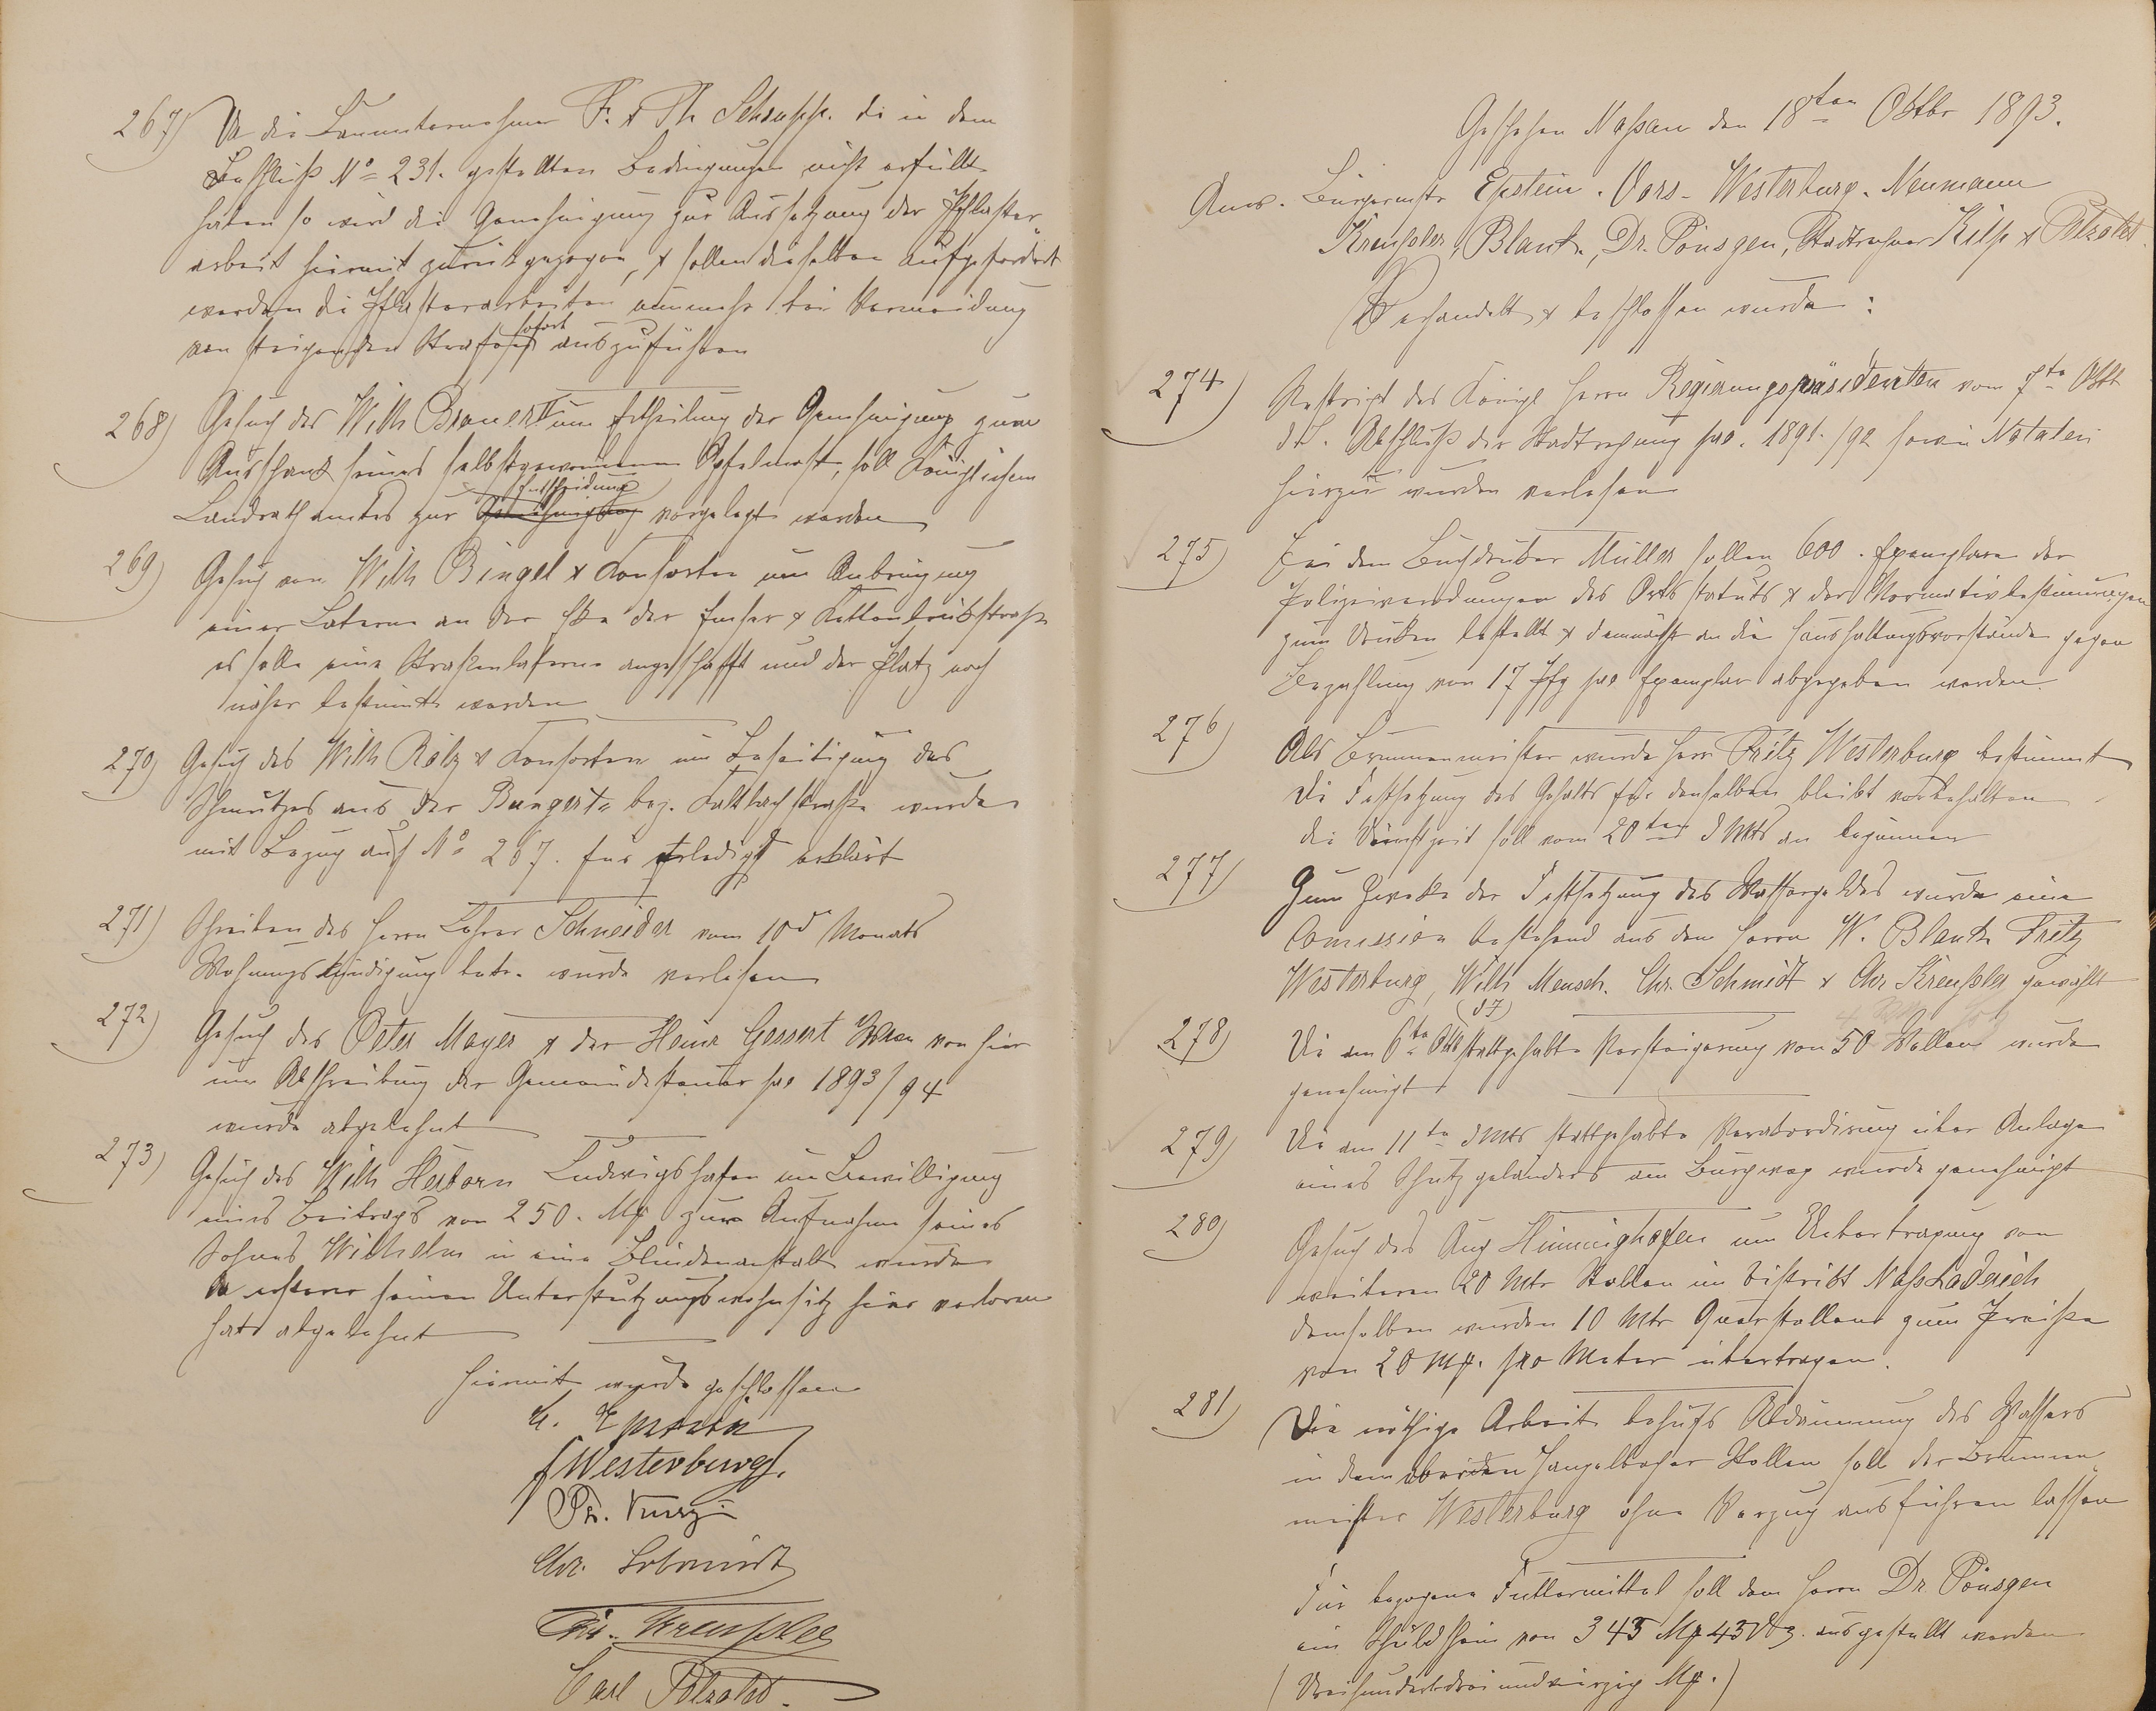 267) Da die Bauunternehmer F. & Th Schrupp. die in dem
Beschluß No 231. gestellten Bedingungen nicht erfüllt
haben so wird die Genehmigung zur Aussetzung der Pflaster„
arbeit hiermit zurückgezogen, & sollen dieselben aufgefordert
werden die Pflasterarbeiten nunmehr bei Vermeidung
von steigenden Strafen sofort auszuführen
268) Gesuch des Wilh Braun um Ertheilung der Genehmigung zum
Ausschank seines selbstgewonnenen Apfelmost, soll Königlichem
Landrathamtes zur Entscheidung vorgelegt werden
269) Gesuch von Wilh Bingel & Konsorten um Anbringung
einer Laterne an der Ecke der Emser & Kettenbrückstraße
es solle eine Straßenlaterne angeschafft und der Platz noch
näher bestimmt werden
270) Gesuch des Wilh Rölz & Konsorten um Beseitigung des
Schmutzes aus der Bungert= bez. Kaltbachstraße wurde
mit Bezug auf No 267. für erledigt erklärt
271) Schreiben des Herrn Lehrer Schneider vom 10 d Monats
Wohnungskündigung betr. wurde verlesen
272) Gesuch des Peter Mayer & der Heinr Gessert Wwe von hier
um Abschreibung der Gemeindesteuer pro 1893/94
wurde abgelehnt
273) Gesuch des Wilh Herborn Ludwigshafen um Bewilligung
eines Beitrags von 250. Mk zur Aufnahme seines
Sohnes Wilhelm in eine Blindenanstalt wurde
da ersterer seinen Unterstützungswohnsitz hier verloren
hat abgelehnt
Hiermit wurde geschlossen
E. Epstein
F Westerburg.
Ph. Kurz
Chr. Schmidt
Chr. Kreußler
Carl Pelzold.
Geschehen Nassau den 18ten Oktbr 1893.
Anw. Bürgermstr Epstein. Vors- Westerburg. Neumann
Kreußler, Blank, Dr. Pönsgen, Stadtrechner Kilp & Pelzold
Verhandelt & beschlossen wurde:
274) Reskript des Königl Herrn Regierungspräsidenten vom 7te Oktb
d J. Abschluß der Stadtrechnung pro. 1891./92 sowie Notaten
hierzu wurden verlesen
275) Bei dem Buchdrucker Müller sollen 600. Exemplare der
Polizeiverordnungen des Ortsstatuts & der Normativbestimmungen
zum Drucken bestellt & demnächst an die Haushaltungsvorstände gegen
Bezahlung von 17 Pfg pro Exemplar abgegeben werden.
276) Als Brunnenmeister wurde Herr Fritz Westerburg bestimmt
Die Festsetzung des Gehalts für denselben bleibt vorbehalten
die Dienstzeit soll vom 20ten d Mts an beginnen
277) Zum Zwecke der Festsetzung des Wassergeldes wurde eine
Comission bestehend aus den Herrn W. Blank Fritz
Westerburg, Wilh Mensch. Chr. Schmidt & Chr Kreußler gewählt
278) Die am 6te Okt (d J) stattgehabte Versteigerung von 50 Wellen wurde
genehmigt
279) Die am 11te d Mts stattgehabte Verakordirung über Anlage
eines Schutzgeländers am Burgweg wurde genehmigt
280) Gesuch des Aug Hinninghofen um Uebertragung von
weiteren 20 Mtr Stollen im Distrikt
demselben wurden 10 Mtr Querstollen zum Preiße
von 20 Mk. pro Meter übertragen.
281) Die nöthige Arbeit behufs Abdämmung des Wassers
in dem oberen Hangelbacher Stollen soll der Brunnen„
meister Westerburg ohne Verzug ausführen lassen
Für bezogene Futtermittel soll dem Herrn Dr Pönsgen
ein Schuldschein von 343 Mk 43 Pfg. ausgestellt werden
(Dreihundertdreiundvierzig Mk.)